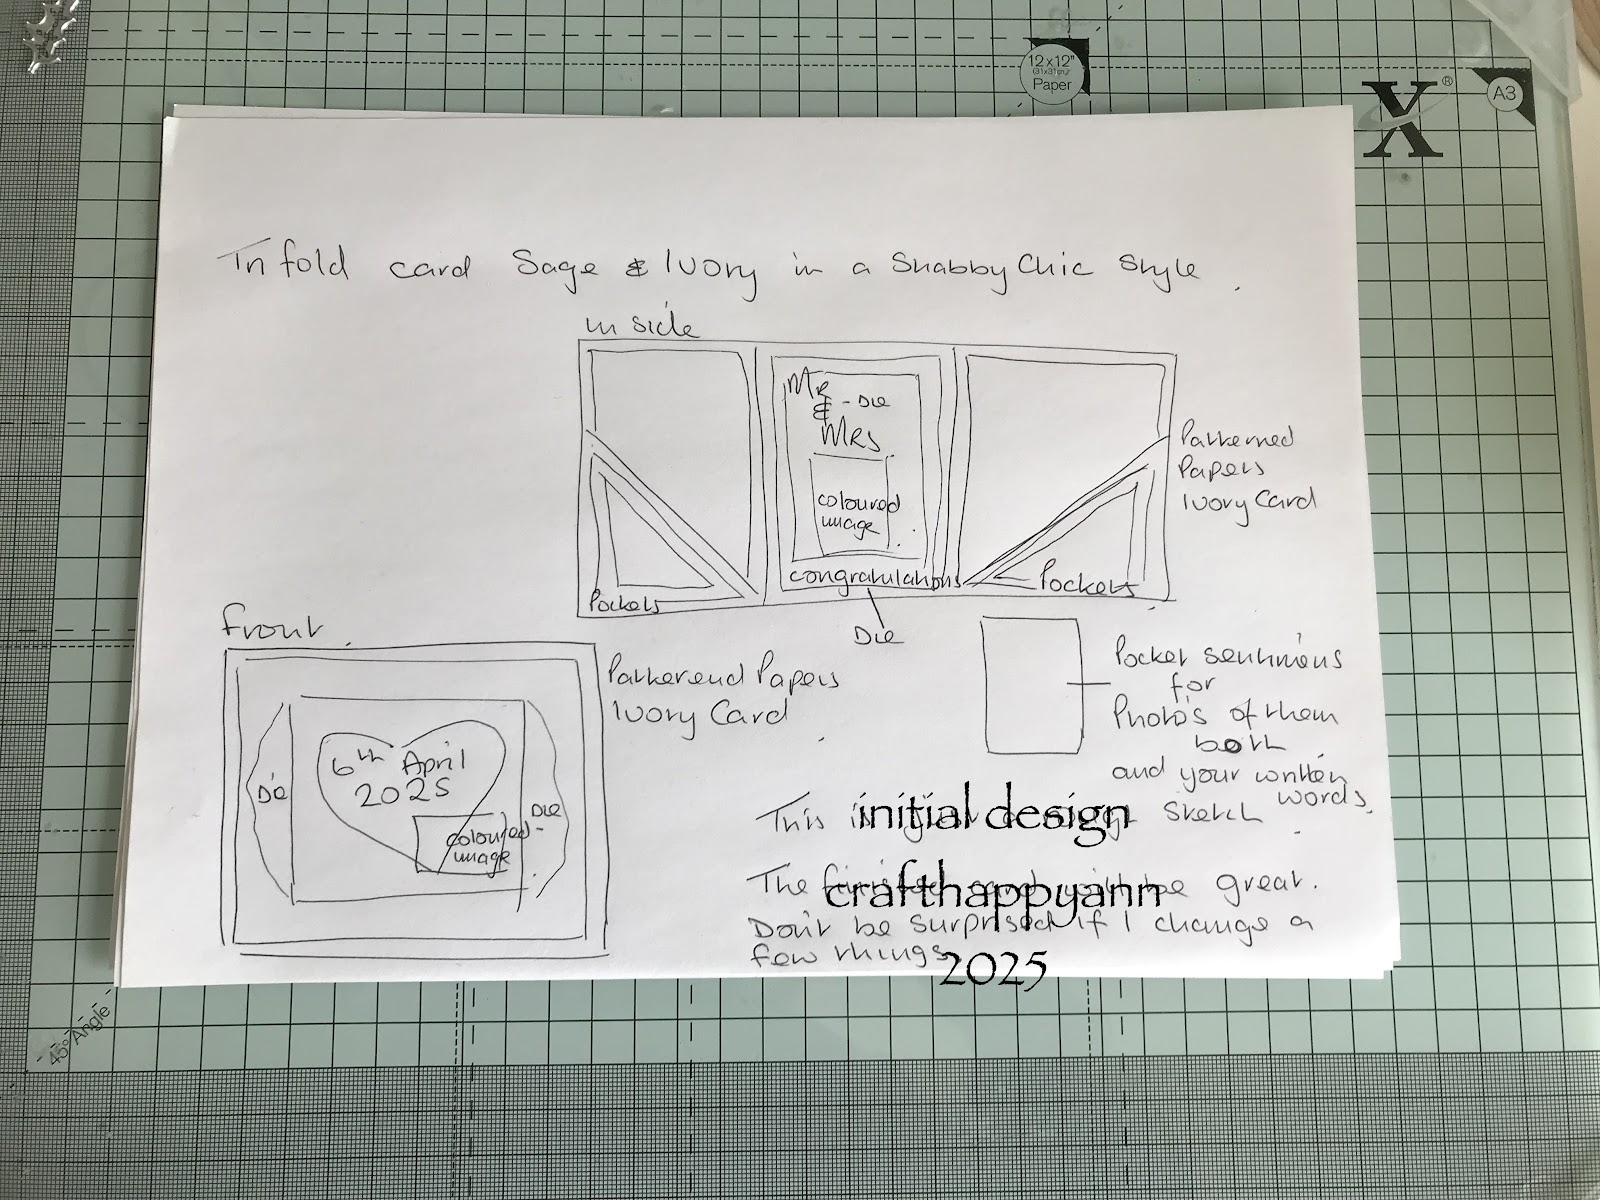 12x12"
(31x31cm)
Paper
A3
X®
Tri fold card Sage & Ivory in a Shabby Chic Style.
Inside
Mr
& - Die
Mrs
coloured
image
congratulations
Die
Pockets
Pockets
Patterned
Papers
Ivory Card
Front.
6th April
2025
Die
Die
coloured
image
Patterend Papers
Ivory Card
Pocket sentimens
for
Photo's of them
both
and your written
words.
This is sketch
initial design
The be great.
crafthappyann
Don't be surprised if I change a
few things
2025
45° Angle